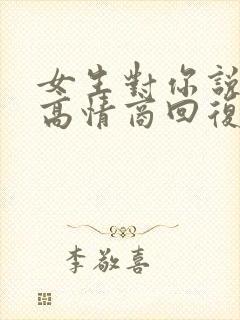 女生對你說
高情商回復
李敬喜